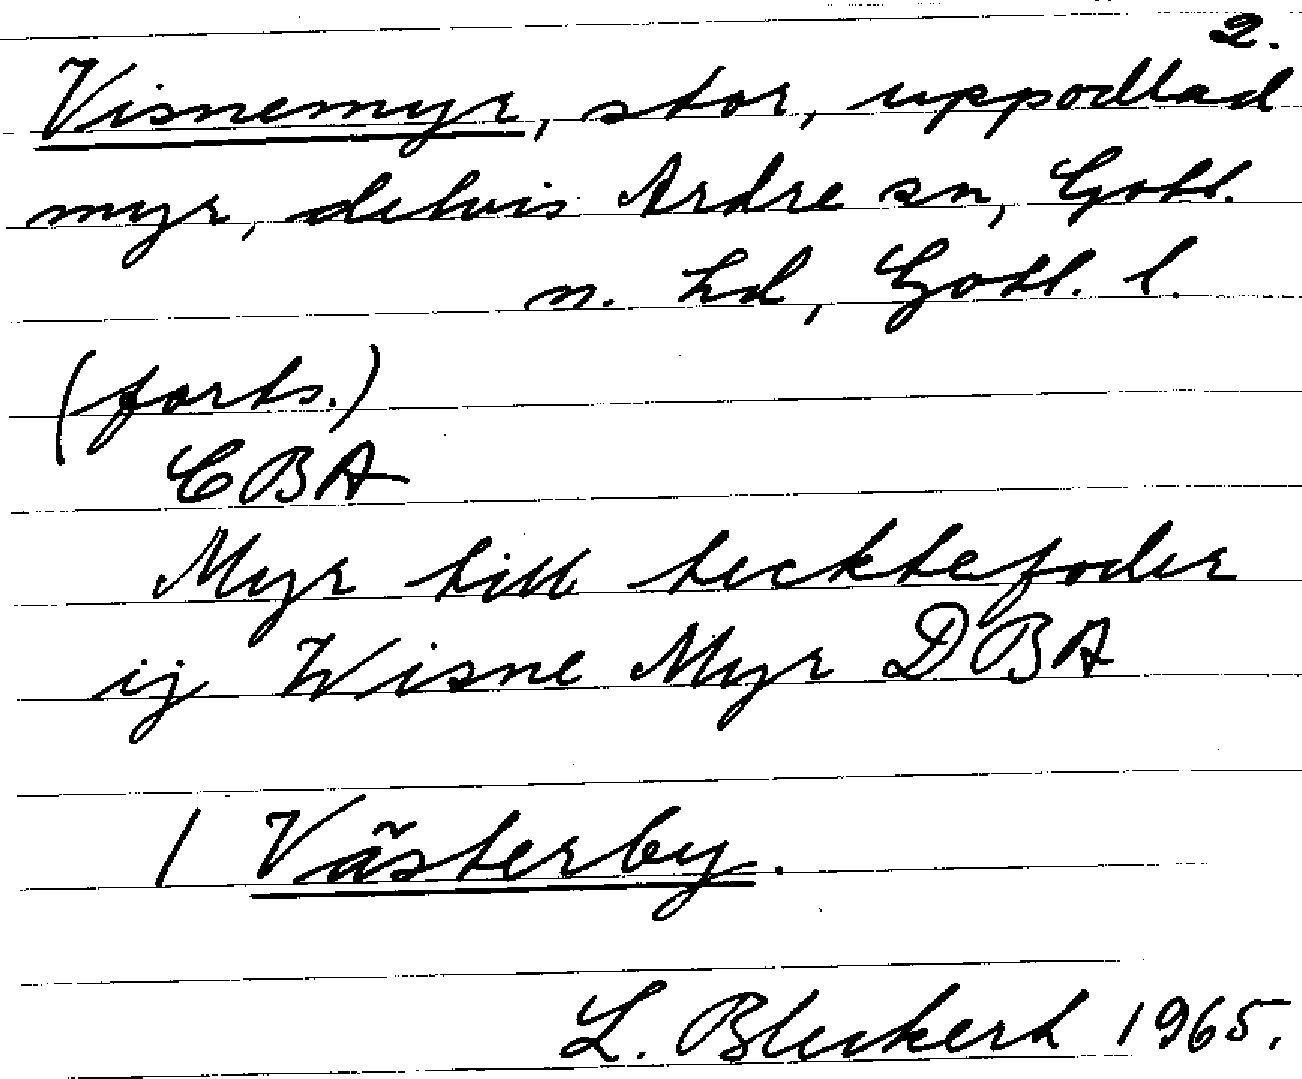 2.
Visnemyr, stor, uppodlad
myr, delvis Ardre sn, Gotl.
n. hd, Gotl. l.
(forts.)
CBA
Myr till tecktefoder
ij Wisne Myr DBA
/ Västerby.
L. Bleckert 1965.